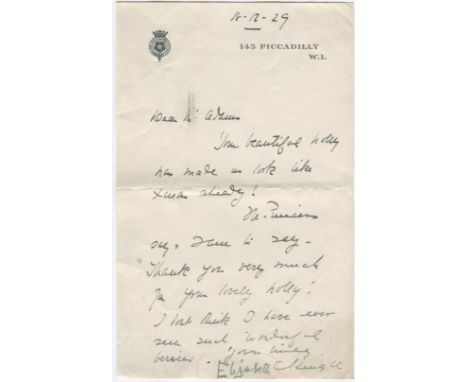 18-12-29
145 PICCADILLY
W.1.
Dear Mr Adams
Your beautiful holly
has made us look like
Xmas already!
The Princess
says I am to say -
"Thank you very much
for your lovely holly".
I don't think I have ever
seen such wonderful
berries!
Elizabeth